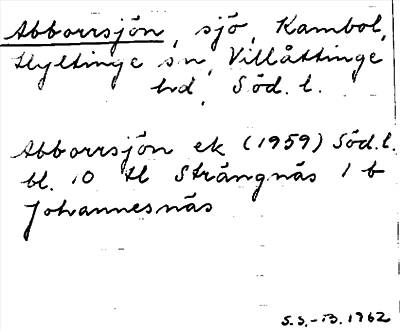 Abborrsjön, sjö, Kambol,
Hyltinge sn, Villåttinge
hd, Söd. l.
Abborrsjön ek (1959) Söd. l.
bl. 10 tl Strängnäs 1 b
Johannesnäs
S.S.-B. 1962